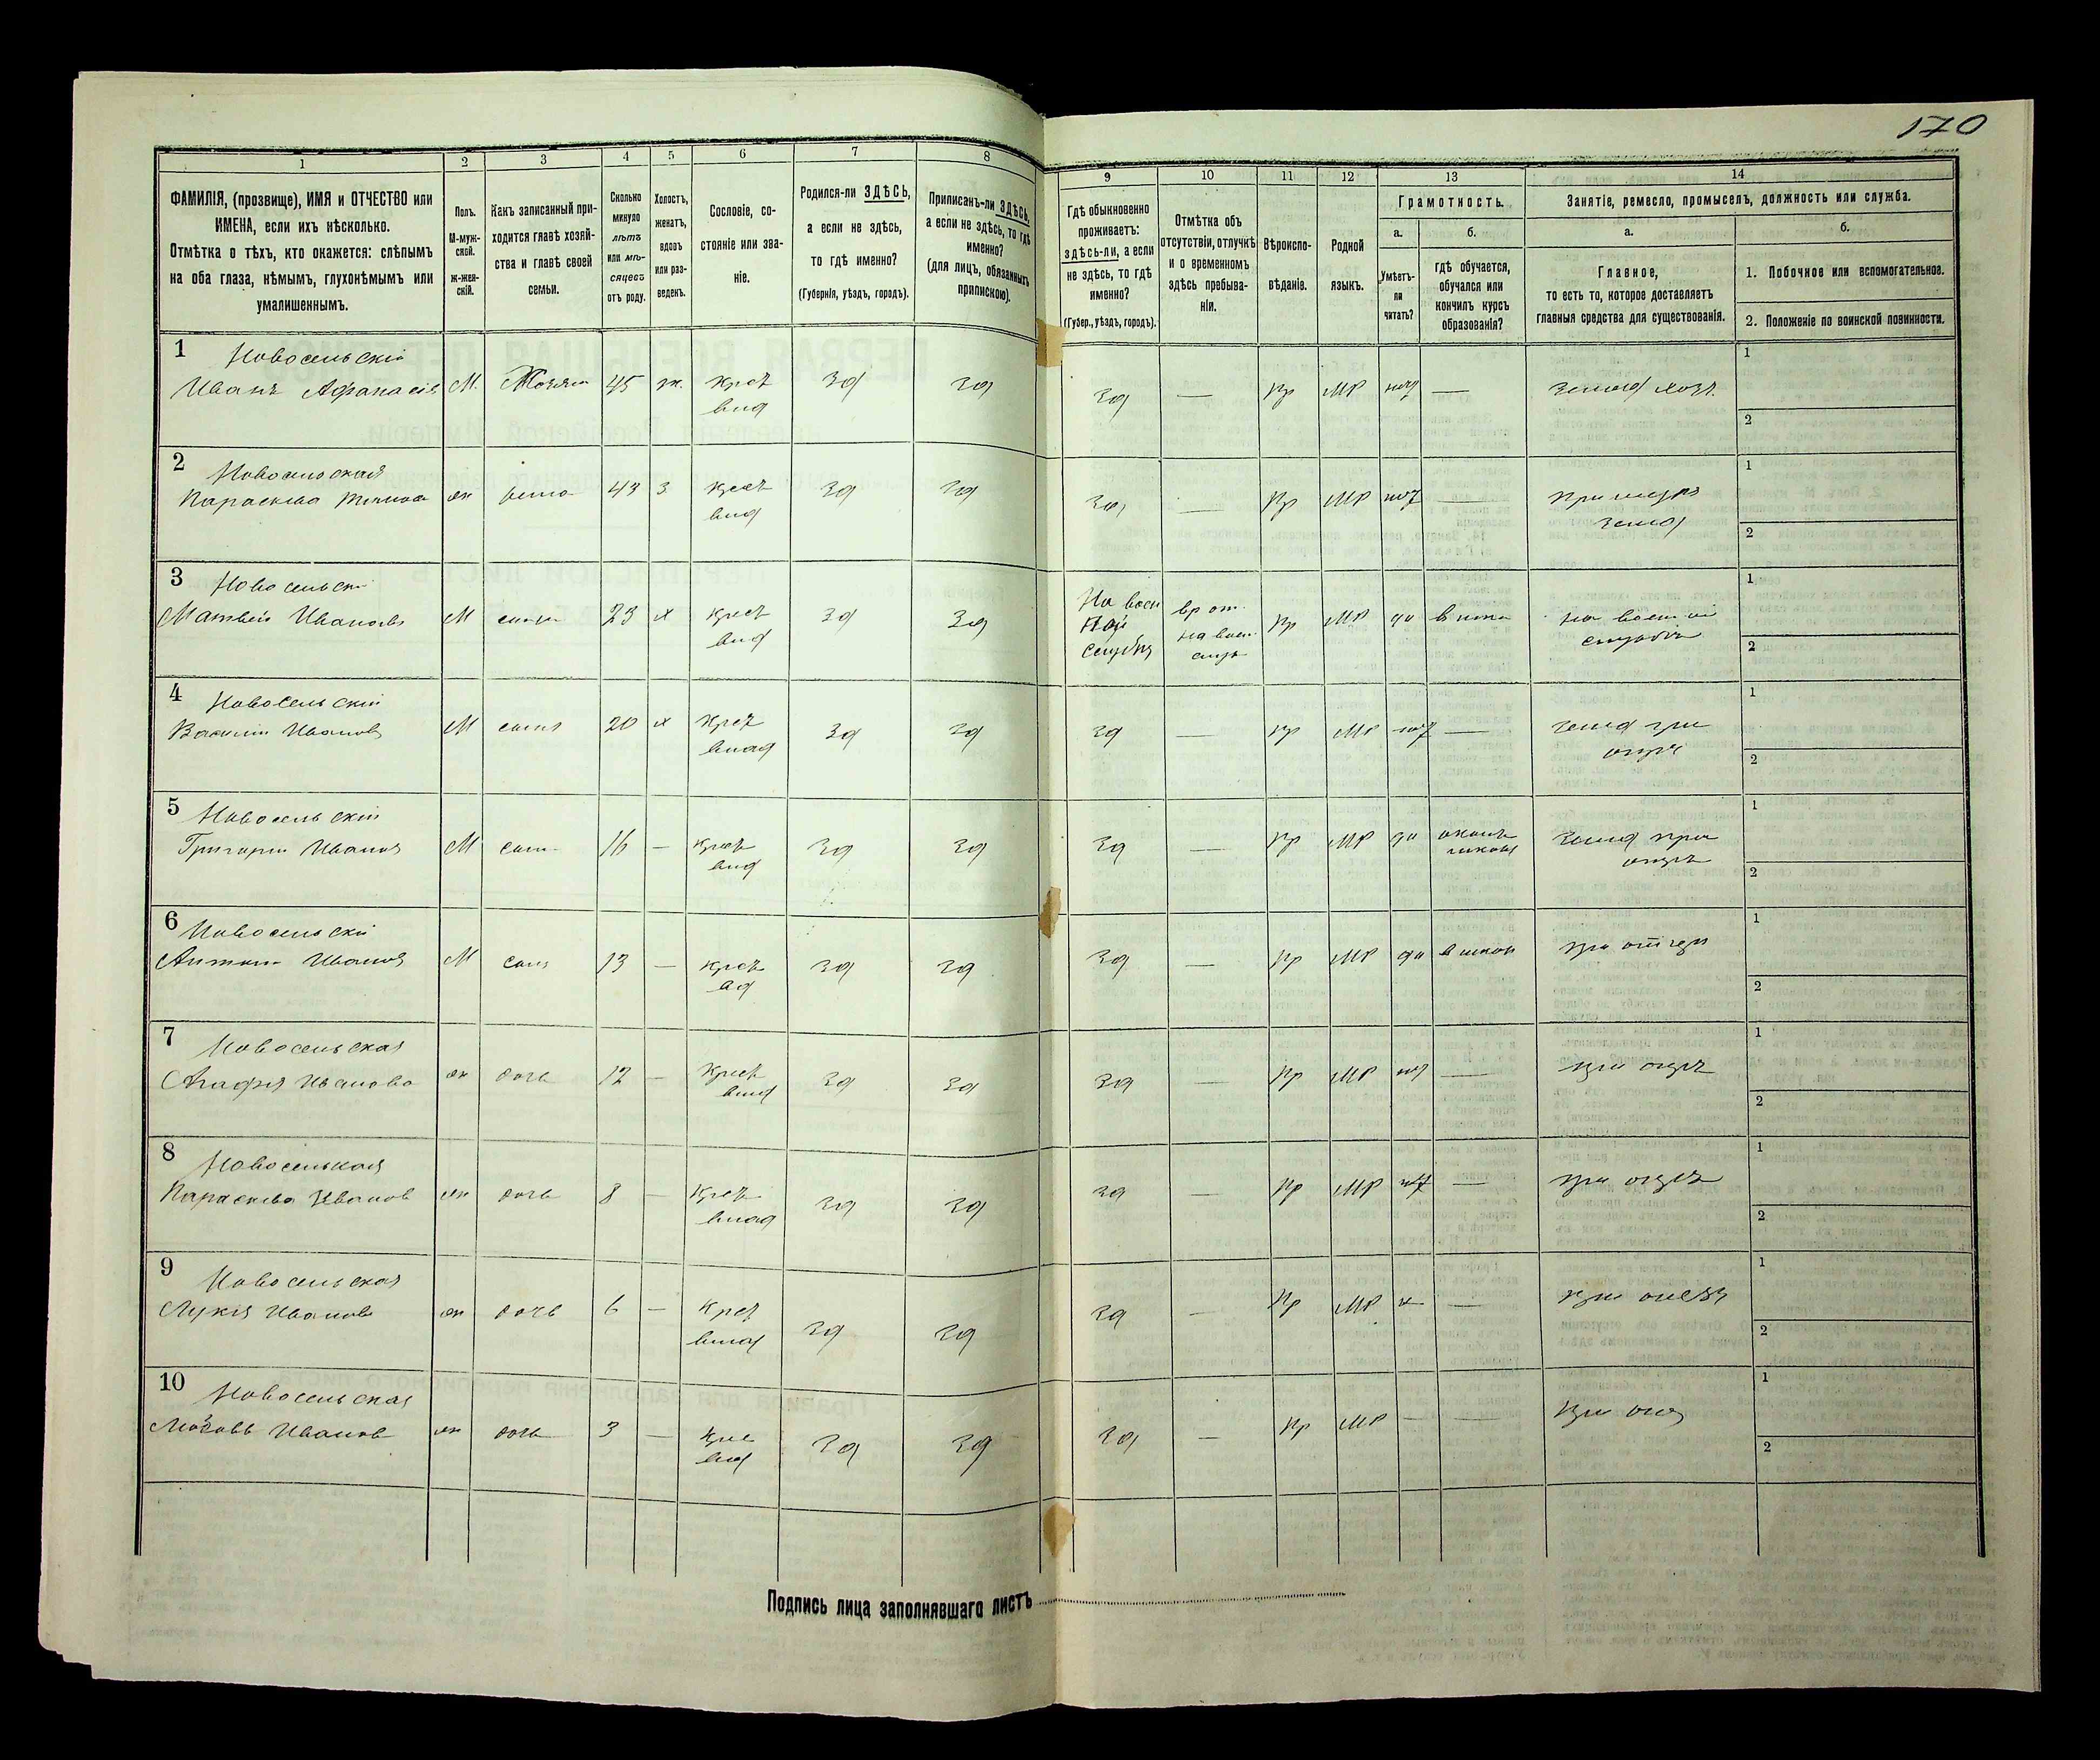 170
1
2
3
4
5
6
7
8
9
10
11
12
13
14
ФАМИЛІЯ, (прозвище), ИМЯ и ОТЧЕСТВО или
ИМЕНА, если ихъ нѣсколько.
Отмѣтка о тѣхъ, кто окажется: слѣпымъ
на оба глаза, нѣмымъ, глухонѣмымъ или
умалишеннымъ.
Полъ.
М-муж-
ской.
ж-жен-
скій.
Какъ записанный при-
ходится главѣ хозяй-
ства и главѣ своей
семьи.
Сколько
минуло
лѣтъ
или мѣ-
сяцевъ
отъ роду.
Холостъ,
женатъ,
вдовъ
или раз-
веденъ.
Сословіе, со-
стояніе или зва-
ніе.
Родился-ли ЗДѢСЬ,
а если не здѣсь,
то гдѣ именно?
(Губернія, уѣздъ, городъ).
Приписанъ-ли ЗДѢСЬ,
а если не здѣсь, то гдѣ
именно?
(для лицъ, обязанныхъ
припискою).
Гдѣ обыкновенно
проживаетъ:
здѣсь-ли, а если
не здѣсь, то гдѣ
именно?
(Губер., уѣздъ, городъ).
Отмѣтка объ
отсутствіи, отлучкѣ
и о временномъ
здѣсь пребыва-
ніи.
Вѣроиспо-
вѣданіе.
Родной
языкъ.
Грамотность.
а.
Умѣетъ-
ли
читать?
б.
гдѣ обучается,
обучался или
кончилъ курсъ
образованія?
Занятіе, ремесло, промыселъ, должность или служба.
а.
Главное,
то есть то, которое доставляетъ
главныя средства для существованія.
б.
1. Побочное или вспомогательное.
2. Положеніе по воинской повинности.
1 Новосельскій
Иванъ Афанасів М. Хозяин 45 ж. крест зд зд зд — пр МР — 1
2
2 Новосельская
Параскева жк жена 43 з крест зд зд зд — пр МР — 1
земл 2
3 Новосельскі
Матвей Ивановъ М сынъ 23 х крест зд зд На воен ной службѣ вр от. на воен служ пр МР да в шко на военной службѣ 1
2
4 Новосельскій
Василій Ивановъ М сынъ 20 х крест зд зд зд — пр МР — земл при отцѣ 1
2
5 Новосельскій
Григорій Иванов М сын 16 — крест зд зд зд — пр МР да земл при отцѣ 1
2
6 Новосельскій
Антон Иванов М сынъ 13 — крест зд зд зд — пр МР да в школ при отцѣ 1
2
7 Новосельская
Агафія Иванова жк дочь 12 — крест зд зд зд — пр МР — при отцѣ 1
2
8 Новоселькая
Параскева Иванов жк дочь 8 — крест зд зд зд — пр МР — при отцѣ 1
2
9 Новосельская
Лукія Иванов жк дочь 6 — крест зд зд зд — пр МР — при 1
2
10 Новосельская
Любовь Иванов жк дочь 3 — крес зд зд зд — пр МР — — при 1
2
Подпись лица заполнявшаго листъ